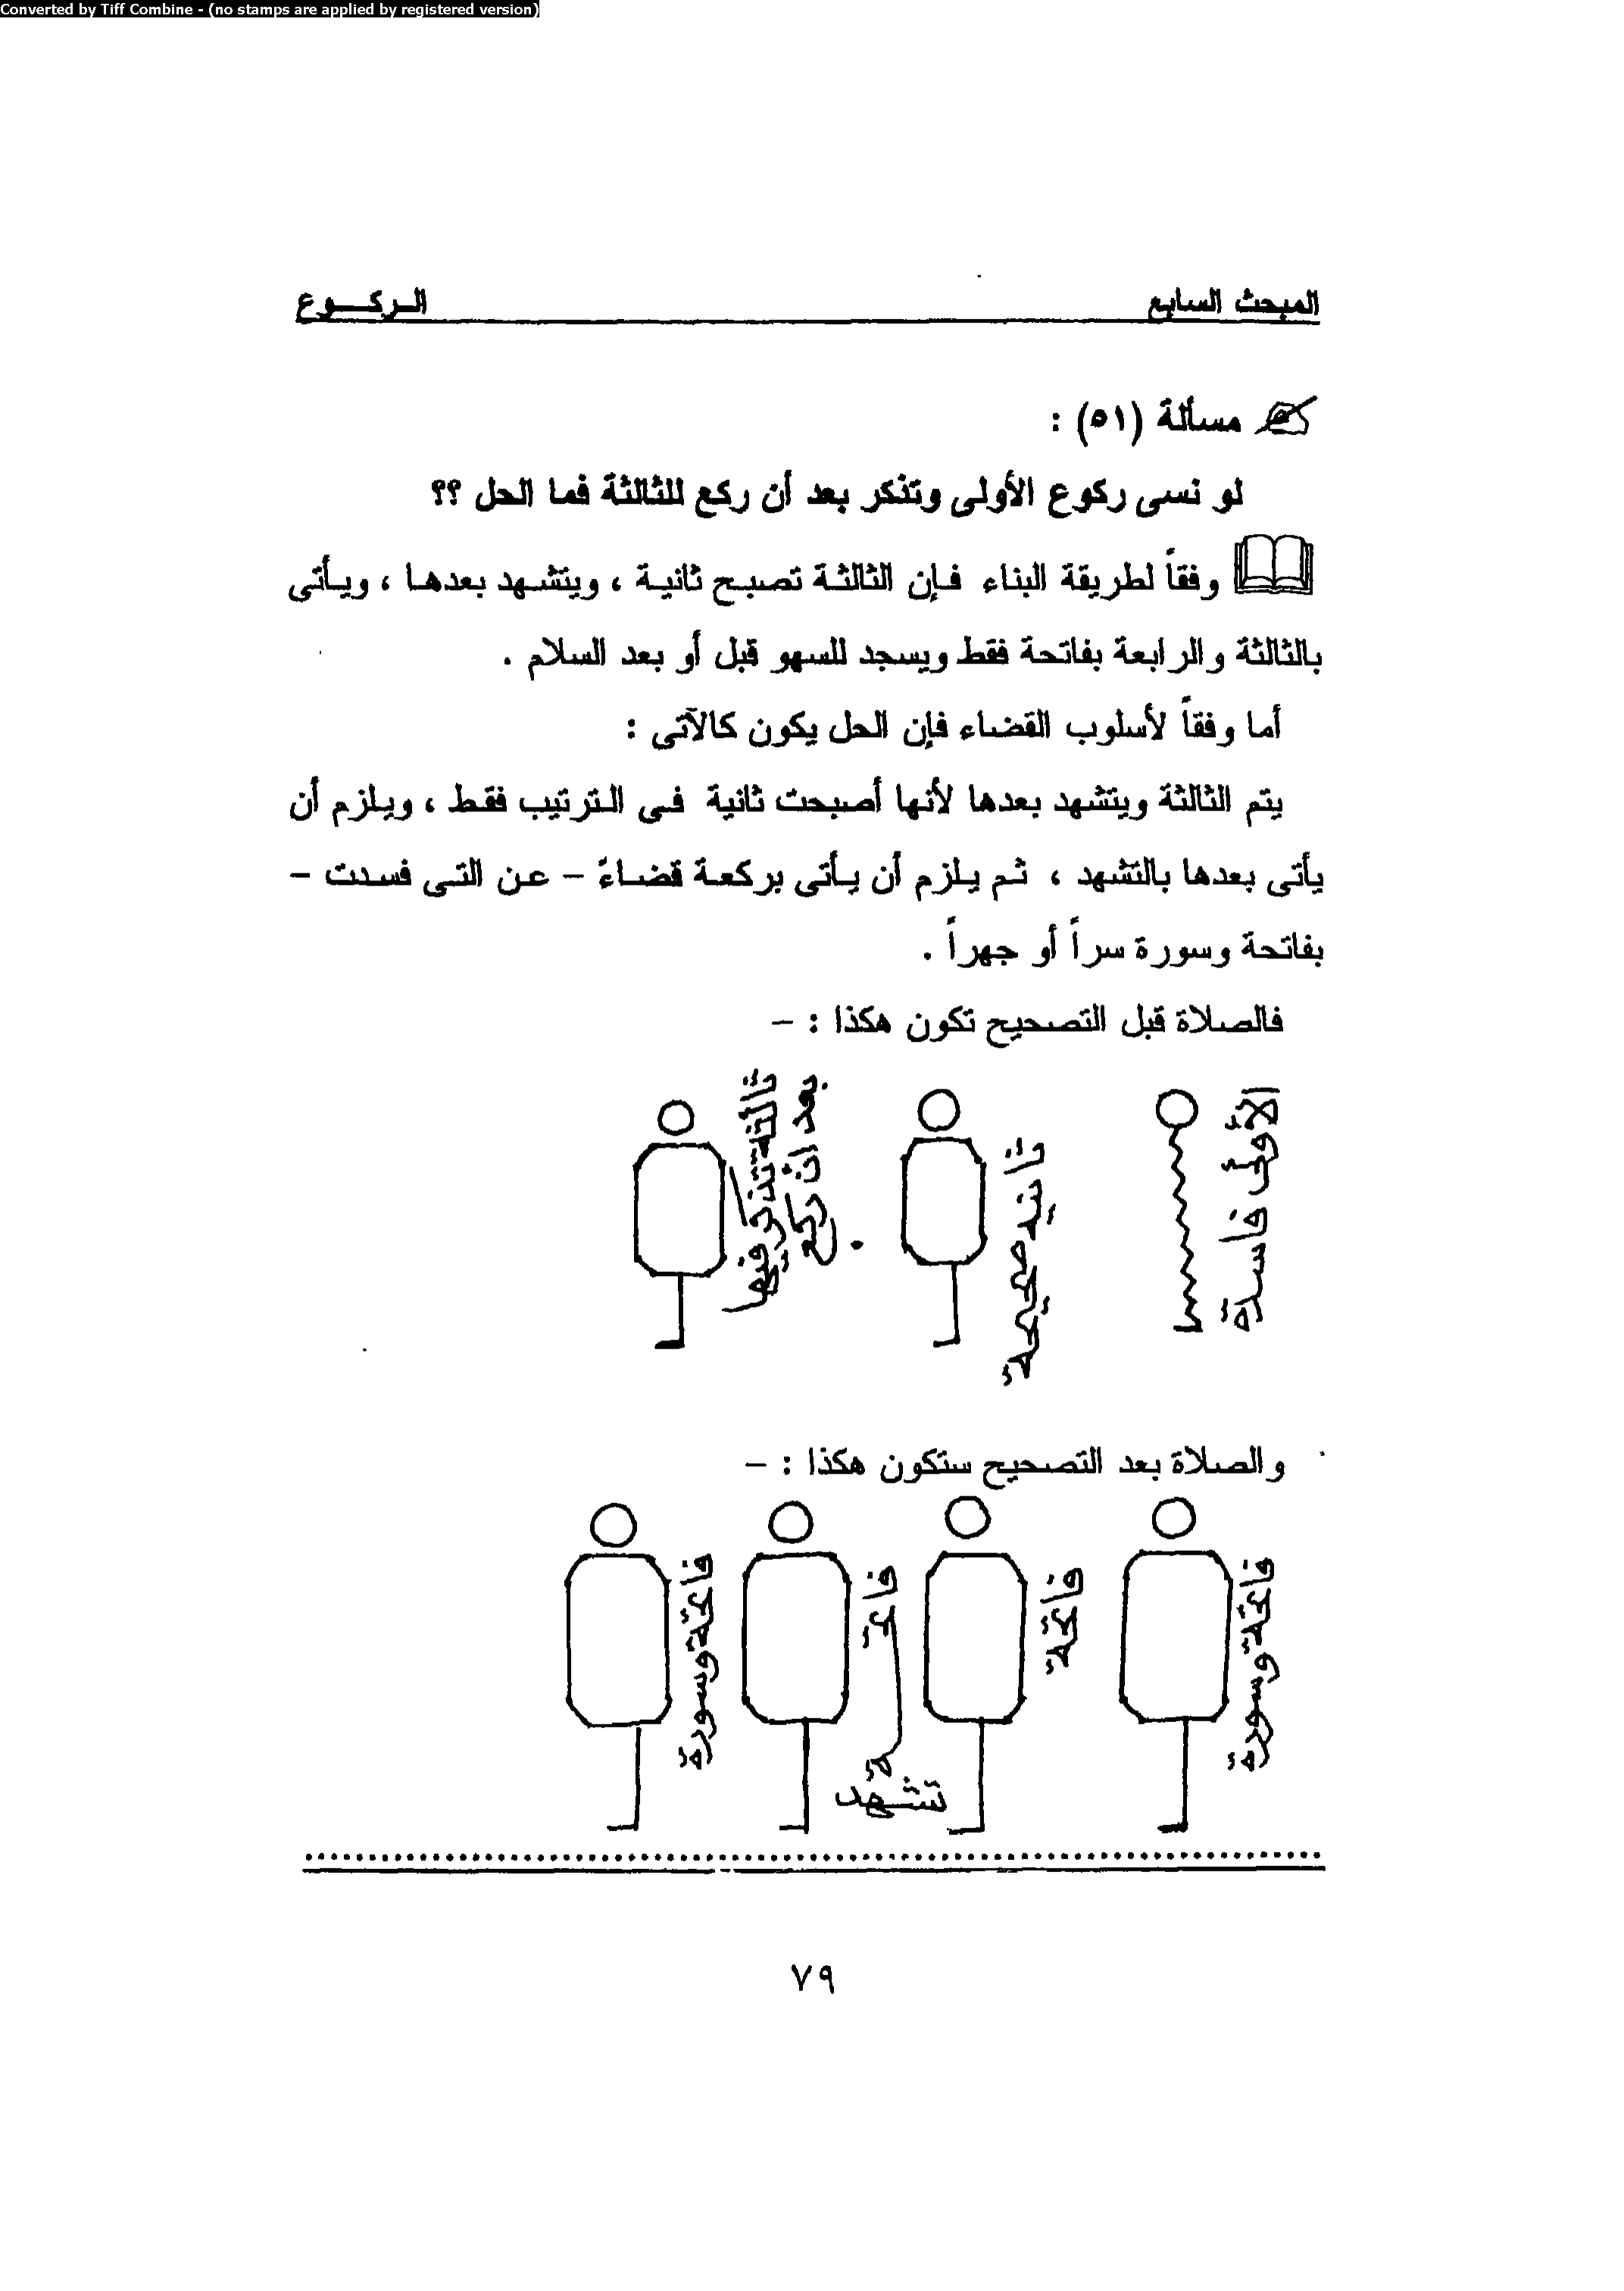 Converted by Tiff Combine - (no stamps are applied by registered version)
المبحث السابع
الـركـــوع
مسألة (٥١) :
لو نسى ركوع الأولى وتذكر بعد أن ركع للثالثة فما الحل ؟؟
وفقاً لطريقة البناء فإن الثالثة تصبح ثانية ، ويتشهد بعدها ، ويأتى
بالثالثة والرابعة بفاتحة فقط ويسجد للسهو قبل أو بعد السلام .
أما وفقاً لأسلوب القضاء فإن الحل يكون كالآتى :
يتم الثالثة ويتشهد بعدها لأنها أصبحت ثانية فى الترتيب فقط ، ويلزم أن
يأتى بعدها بالتشهد ، ثم يلزم أن يأتى بركعة قضاءً – عن التى فسدت –
بفاتحة وسورة سراً أو جهراً .
فالصلاة قبل التصحيح تكون هكذا : –
الأولى فاسدة
ثانيه صحيحة
بعد ان ركع
ثالثة تذكر فيها
والصلاة بعد التصحيح ستكون هكذا : –
فاتحة وسورة
فاتحة
فاتحة
فاتحة وسورة
تشهد
٧٩